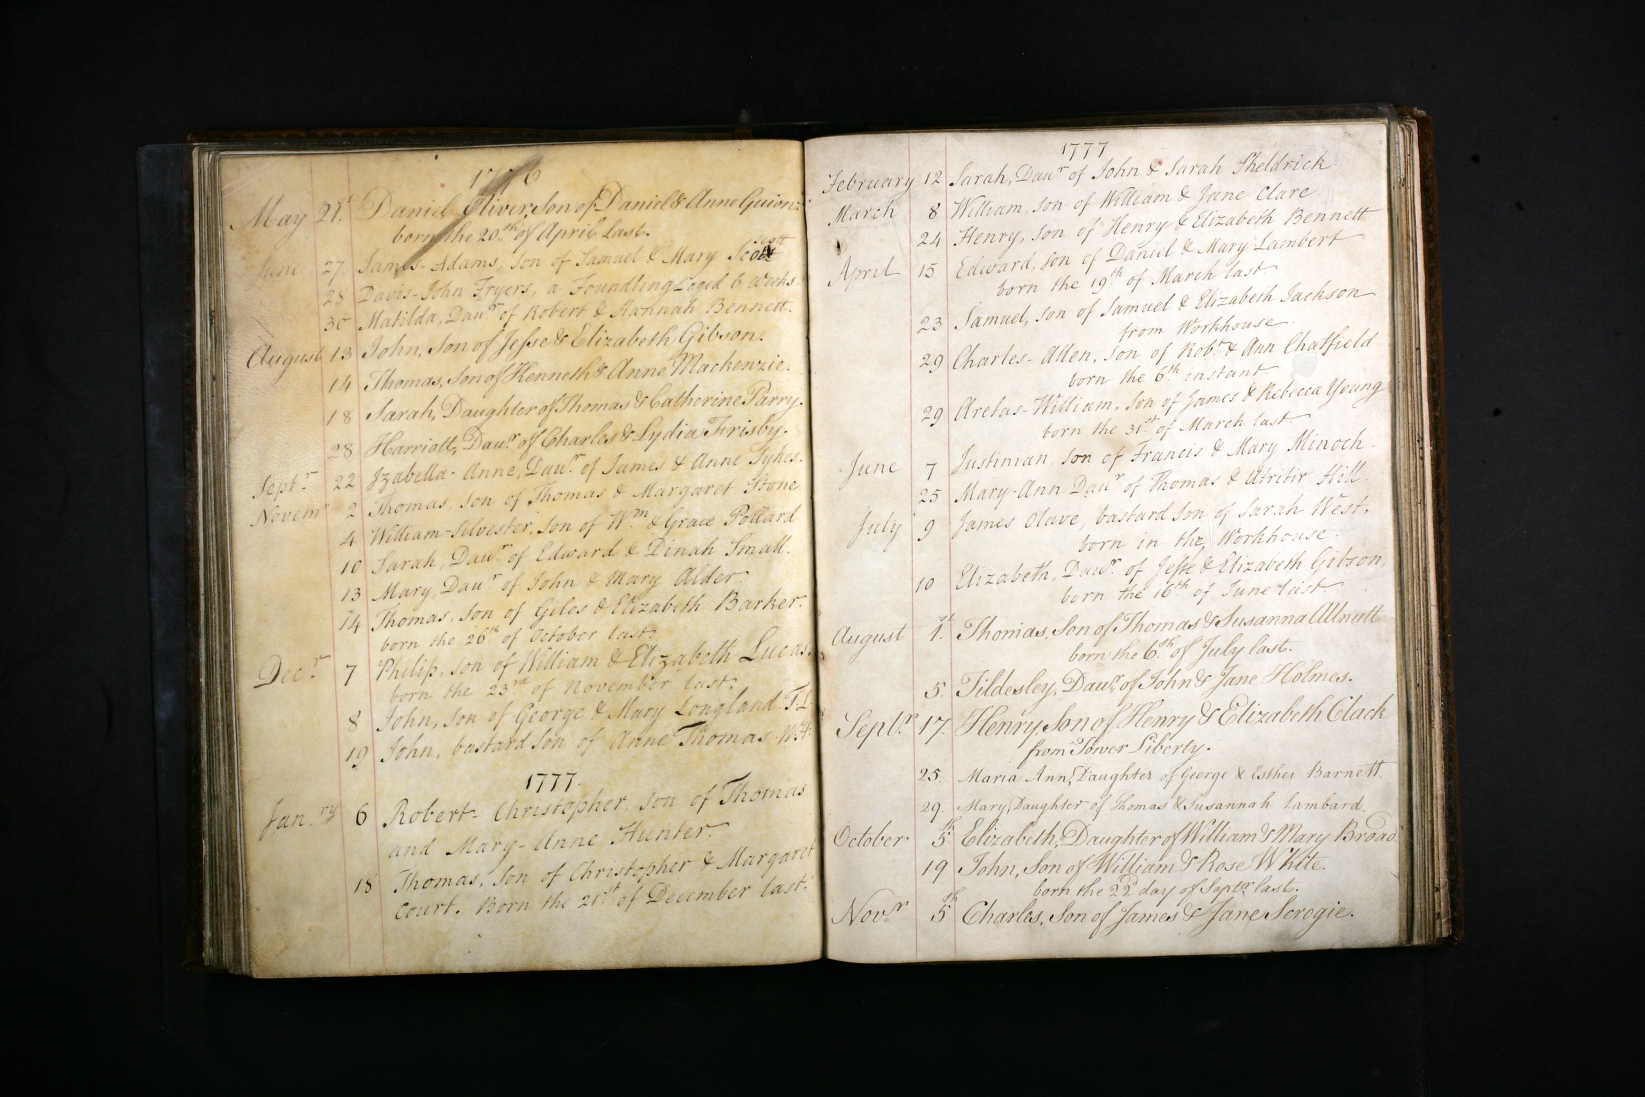 1776
May 21st Daniel Oliver, Son of Daniel & Anne Guion
born the 20.th of April last.
June 27 James-Adams, Son of Samuel & Mary Scott
28 Davis-John Fryers, a Foundling aged 6 Weeks
30 Matilda, Daur of Robert & Hannah Bennett.
August 13 John, Son of Jesse & Elizabeth Gibson.
14 Thomas, Son of Kenneth & Anne Mackenzie.
18 Sarah, Daughter of Thomas & Catherine Parry.
28 Harriott, Daur. of Charles & Lydia Frisby.
Septr 22 Izabella-Anne, Daur. of James & Anne Sykes.
Novemr 2 Thomas, Son of Thomas & Margaret Stone
4 William-Silvester, Son of Wm. & Grace Pollard
10 Sarah, Daur. of Edward & Dinah Small.
13 Mary, Daur of John & Mary Alder.
14 Thomas, Son of Giles & Elizabeth Barker.
born the 26th of October last.
Decr 7 Philip, Son of William & Elizabeth Lucas.
born the 23rd of November last.
8 John, Son of George & Mary Longland. TL
19 John, bastard Son of Anne Thomas. WH.
1777.
Janry 6 Robert-Christopher, Son of Thomas
and Mary-Anne Hunter.
18 Thomas, Son of Christopher & Margaret
Court. Born the 21st of December last.
1777
February 12 Sarah, Daur of John & Sarah Sheldrick
March 8 William, Son of William & Jane Clare
24 Henry, Son of Henry & Elizabeth Bennett
April 15 Edward, Son of Daniel & Mary Lambert
born the 19th of March last
23 Samuel, Son of Samuel & Elizabeth Jackson
from Workhouse.
29 Charles-Allen, Son of Robt & Ann Chatfield
born the 6th instant
29 Aretas-William, Son of James & Rebecca Young
born the 31st of March last.
June 7 Justinian, Son of Francis & Mary Minoch.
25 Mary-Ann Daur of Thomas & Hill
July 9 James Olave, bastard Son of Sarah West,
born in the Workhouse.
10 Elizabeth, Daur. of Jesse & Elizabeth Gibson,
born the 16th of June last
August 1st. Thomas, Son of Thomas & Susanna Allnutt
born the 6.th of July last.
5. Tildesley, Daur. of John & Jane Holmes.
Septr. 17. Henry, Son of Henry & Elizabeth Clack
from Tower Liberty.
25. Maria Ann, Daughter of George & Esther Barnett
29. Mary, Daughter of Thomas & Susannah Lambard.
October. 5th Elizabeth, Daughter of William & Mary Broad
19 John, Son of William & Rose White.
born the 22d day of Septr. last.
Novr 5th Charles, Son of James & Jane Scregie.